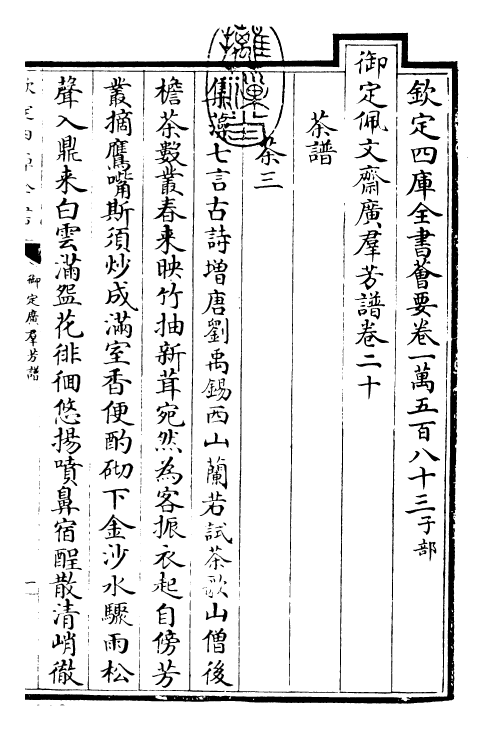 欽定四庫全書薈要卷一萬五百八十三子部
御定佩文齋廣羣芳譜卷二十
茶譜
茶三
集藻七言古詩增唐劉禹錫西山蘭若試茶歌山僧後
檐茶數叢春来映竹抽新茸宛然為客振衣起自傍芳
叢摘鷹嘴斯須炒成滿室香便酌砌下金沙水驟雨松
聲入鼎来白雲滿盌花徘徊悠揚噴鼻宿酲散清峭徹
御定廣羣芳譜
一